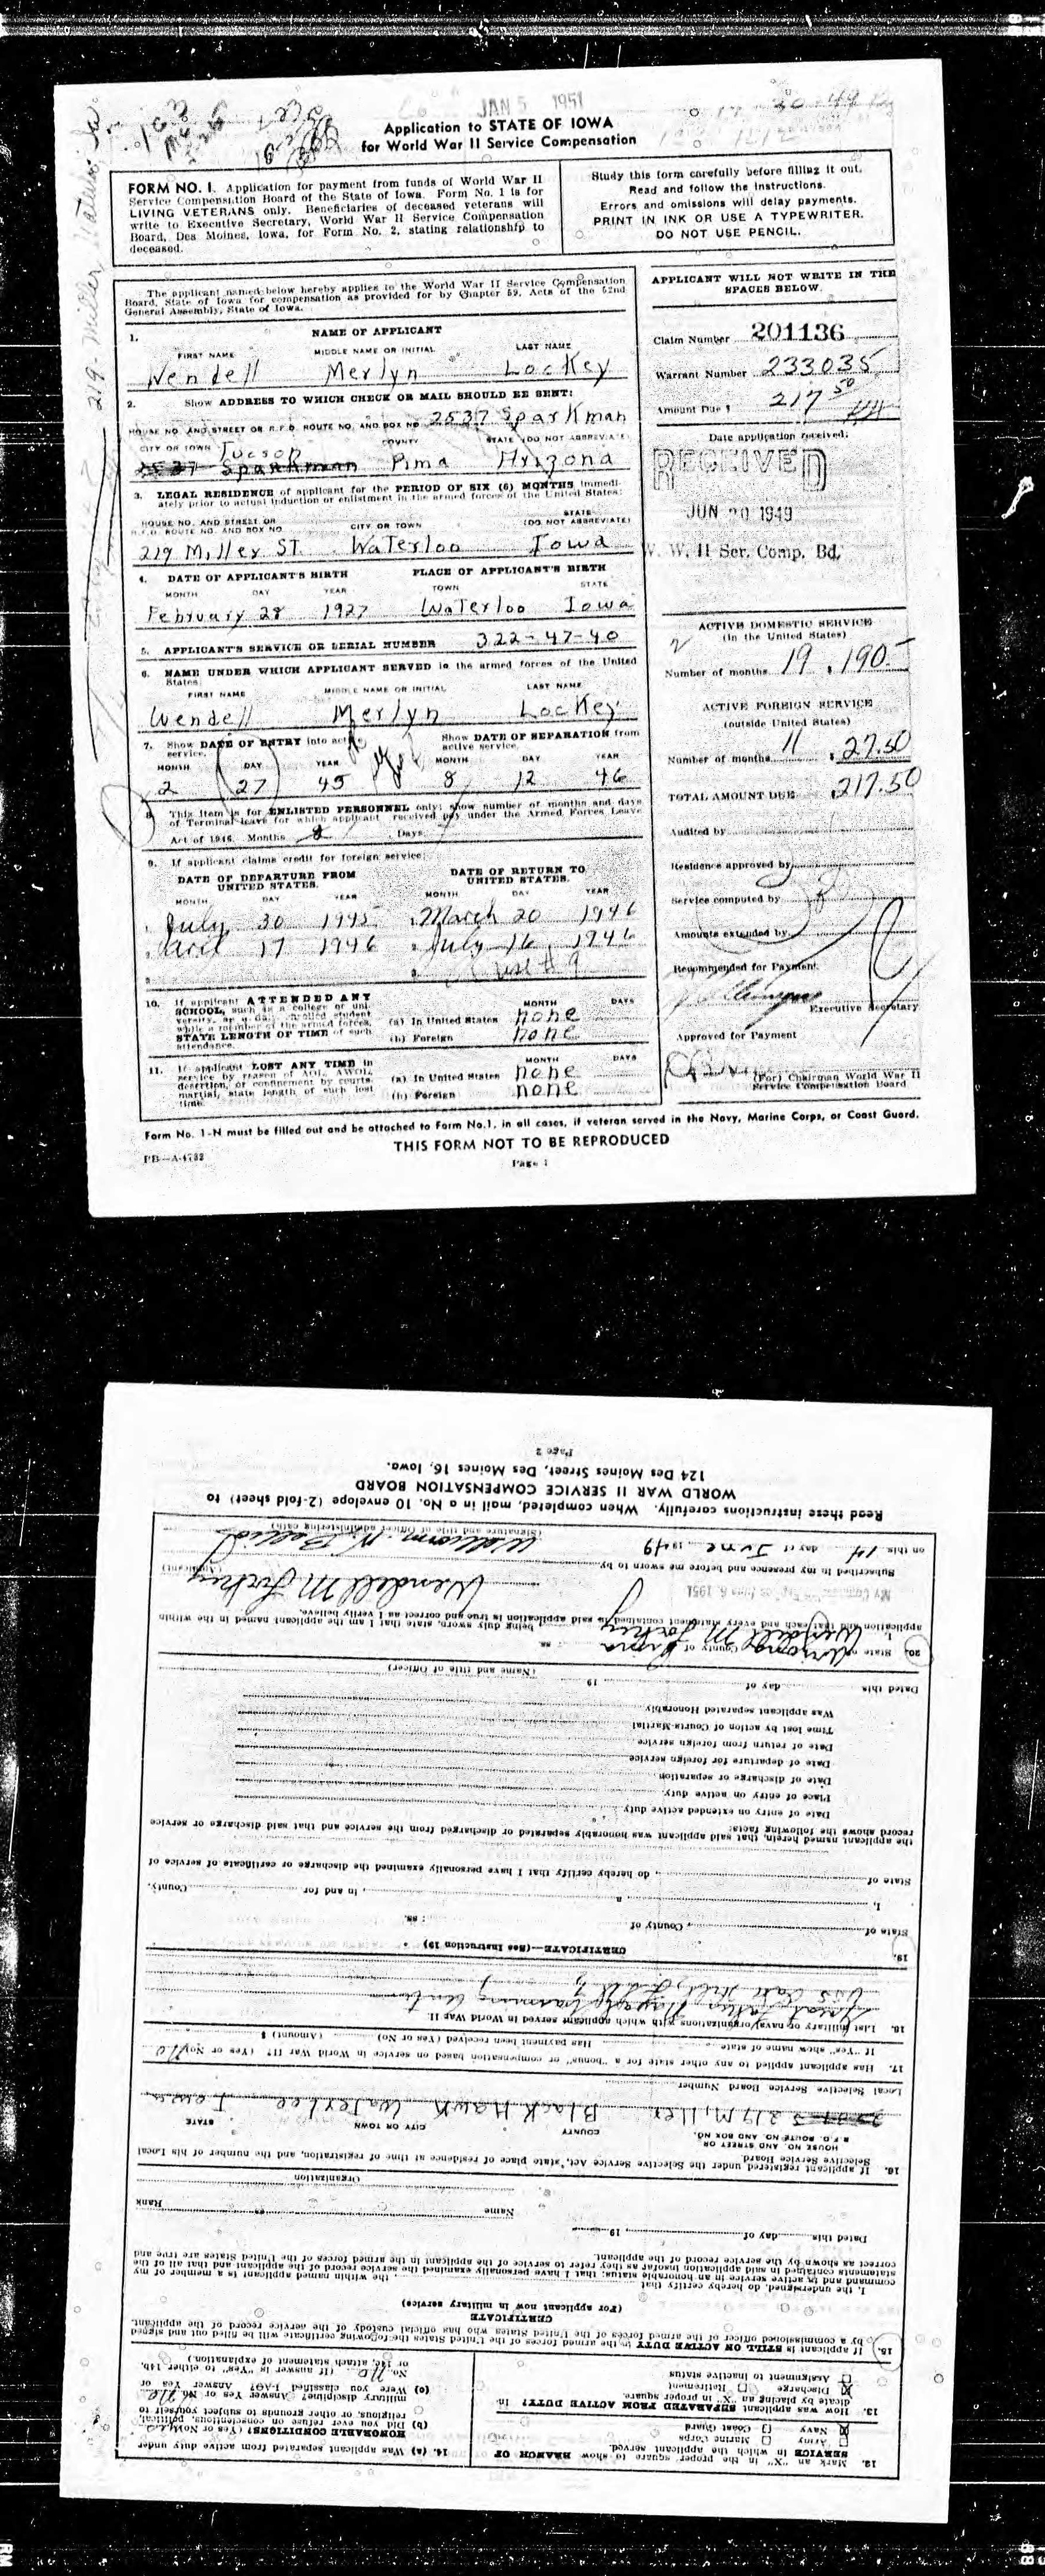 JAN 5 1951
Application to STATE OF IOWA
for World War II Service Compensation
219 Miller, Waterloo Ia.
FORM NO. 1. Application for payment from funds of World War II
Service Compensation Board of the State of Iowa. Form No. 1 is for
LIVING VETERANS only. Beneficiaries of deceased veterans will
write to Executive Secretary, World War II Service Compensation
Board, Des Moines, Iowa, for Form No. 2, stating relationship to
deceased.
Study this form carefully before filling it out.
Read and follow the instructions.
Errors and omissions will delay payments.
PRINT IN INK OR USE A TYPEWRITER.
DO NOT USE PENCIL.
The applicant named below hereby applies to the World War II Service Compensation
Board, State of Iowa for compensation as provided for by Chapter 59, Acts of the 52nd
General Assembly, State of Iowa.
1. NAME OF APPLICANT
FIRST NAME MIDDLE NAME OR INITIAL LAST NAME
Wendell Merlyn Lockey
2. Show ADDRESS TO WHICH CHECK OR MAIL SHOULD BE SENT:
HOUSE NO. AND STREET OR R.F.D. ROUTE NO. AND BOX NO. 2537 Sparkman
CITY OR TOWN COUNTY STATE (DO NOT ABBREVIATE)
Tucson
2537 Sparkman Pima Arizona
3. LEGAL RESIDENCE of applicant for the PERIOD OF SIX (6) MONTHS immedi-
ately prior to actual induction or enlistment in the armed forces of the United States:
HOUSE NO. AND STREET OR
R.F.D. ROUTE NO. AND BOX NO. CITY OR TOWN STATE (DO NOT ABBREVIATE)
219 Miller ST. Waterloo Iowa
4. DATE OF APPLICANT'S BIRTH PLACE OF APPLICANT'S BIRTH
MONTH DAY YEAR TOWN STATE
February 28 1927 Waterloo Iowa
5. APPLICANT'S SERVICE OR SERIAL NUMBER 322-47-40
6. NAME UNDER WHICH APPLICANT SERVED in the armed forces of the United
States:
FIRST NAME MIDDLE NAME OR INITIAL LAST NAME
Wendell Merlyn Lockey
7. Show DATE OF ENTRY into active
service. Show DATE OF SEPARATION from
active service.
MONTH DAY YEAR MONTH DAY YEAR
2 27 45 8 12 46
8. This item is for ENLISTED PERSONNEL only; show number of months and days
of Terminal leave for which applicant received pay under the Armed Forces Leave
Act of 1946. Months Days
9. If applicant claims credit for foreign service:
DATE OF DEPARTURE FROM
UNITED STATES. DATE OF RETURN TO
UNITED STATES.
MONTH DAY YEAR MONTH DAY YEAR
July 30 1945 March 20 1946
April 17 1946 July 16, 1946
10. If applicant ATTENDED ANY
SCHOOL, such as a college or uni-
versity, as a duly enrolled student
while a member of the armed forces,
STATE LENGTH OF TIME of such
attendance.
MONTH DAYS
(a) In United States none
(b) Foreign none
11. If applicant LOST ANY TIME in
service by reason of AOL, AWOL,
desertion, or confinement by courts
martial, state length of such lost
time.
MONTH DAYS
(a) In United States none
(b) Foreign none
APPLICANT WILL NOT WRITE IN THE
SPACES BELOW.
Claim Number 201136
Warrant Number 233035
Amount Due $ 217 50
Date application received:
RECEIVED
JUN 20 1949
W. W. II Ser. Comp. Bd.
ACTIVE DOMESTIC SERVICE
(In the United States)
Number of months 19 $ 190.-
ACTIVE FOREIGN SERVICE
(outside United States)
Number of months 11 $ 27.50
TOTAL AMOUNT DUE $ 217.50
Audited by
Residence approved by
Service computed by
Amounts extended by
Recommended for Payment
Executive Secretary
Approved for Payment
(For) Chairman World War II
Service Compensation Board
Form No. 1-N must be filled out and be attached to Form No.1, in all cases, if veteran served in the Navy, Marine Corps, or Coast Guard.
THIS FORM NOT TO BE REPRODUCED
PB—A-4732
Page 1
12. Mark an "X" in the proper square to show BRANCH OF
SERVICE in which the applicant served.
Army Marine Corps
Navy Coast Guard
13. How was applicant SEPARATED FROM ACTIVE DUTY? In-
dicate by placing an "X" in proper square.
Discharge Retirement
Assignment to inactive status
14. (a) Was applicant separated from active duty under
HONORABLE CONDITIONS? (Yes or No) yes
(b) Did you ever refuse on conscientious, political,
religious, or other grounds to subject yourself to
military discipline? Answer Yes or No. no
(c) Were you classified 1-AO? Answer Yes or
No. no (If answer is "Yes" to either 14b,
or 14c, attach statement of explanation.)
15. If applicant is STILL ON ACTIVE DUTY in the armed forces of the United States the following certificate will be filled out and signed
by a commissioned officer of the armed forces of the United States who has official custody of the service record of the applicant.
CERTIFICATE
(For applicant now in military service)
I, the undersigned, do hereby certify that , the within named applicant is a member of my
command and in active service in an honorable status; that I have personally examined the service record of the applicant and that all of the
statements contained in said application insofar as they refer to service of the applicant in the armed forces of the United States are true and
correct as shown by the service record of the applicant.
Dated this day of , 19
Name Rank
Organization
16. If applicant registered under the Selective Service Act, state place of residence at time of registration, and the number of his Local
Selective Service Board.
HOUSE NO. AND STREET OR
R.F.D. ROUTE NO. AND BOX NO. COUNTY CITY OR TOWN STATE
219 Miller Black Hawk Waterloo Iowa
Local Selective Service Board Number
17. Has applicant applied to any other state for a "bonus" or compensation based on service in World War II? (Yes or No) No
If "Yes", show name of state Has payment been received (Yes or No) (Amount) $
18. List military or naval organizations with which applicant served in World War II.
Great Lakes Naval Training Center
USS Oak Hill
19. CERTIFICATE—(See Instruction 19)
State of , County of : ss.
I, a , in and for County,
State of , do hereby certify that I have personally examined the discharge or certificate of service of
the applicant named herein, that said applicant was honorably separated or discharged from the service and that said discharge or service
record shows the following facts:
Date of entry on extended active duty
Place of entry on active duty
Date of discharge or separation
Date of departure for foreign service
Date of return from foreign service
Time lost by action of Courts-Martial
Was applicant separated Honorably
Dated this day of 19
(Name and title of Officer)
20. State of Arizona County of Pima ss.
I, Wendell M Lockey being duly sworn, state that I am the applicant named in the within
application and that each and every statement contained in said application is true and correct as I verily believe.
My Commission Expires June 6 1951
Wendell M Lockey
(Applicant)
Subscribed in my presence and before me sworn to by
on this 14 day of June 1949
(Signature and title of Officer administering oath)
Read these instructions carefully. When completed, mail in a No. 10 envelope (2-fold sheet) to
WORLD WAR II SERVICE COMPENSATION BOARD
124 Des Moines Street, Des Moines 16, Iowa.
Page 2